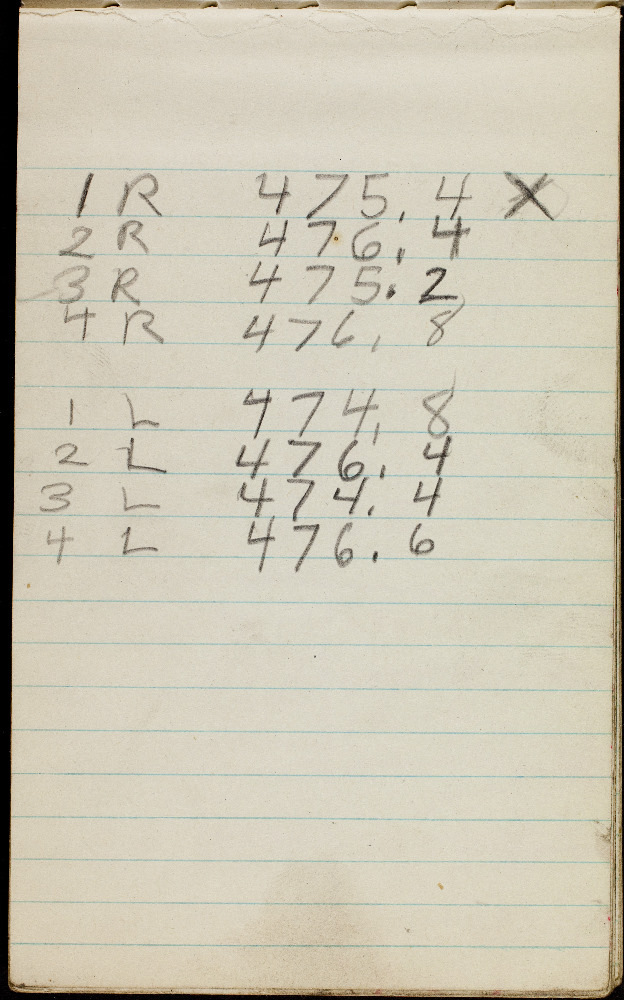 1 R 475.4 X
2 R 476.4
3 R 475.2
4 R 476.8
1 L 474.8
2 L 476.4
3 L 474.4
4 L 476.6